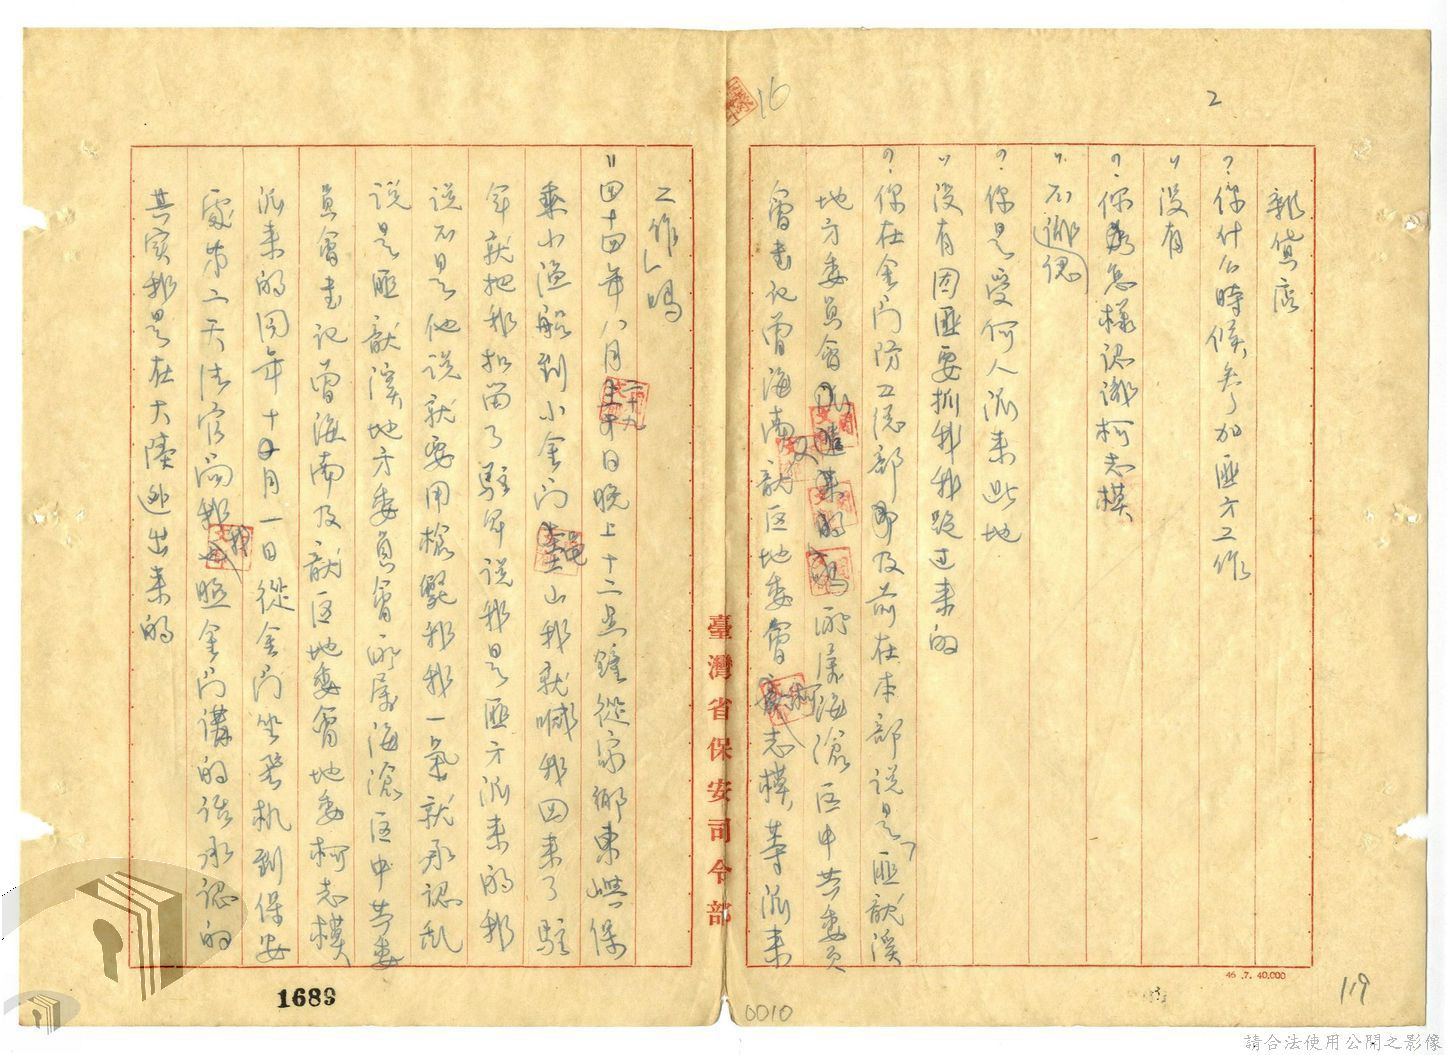 2
16
雜貨店
?你什么時候參加匪方工作
〃沒有
?你怎樣認識柯志模
〃不認識
?你是受何人派來此地
〃沒有因匪要抓我我跑过来的
?你在金門防卫总部及前在本部說是「匪龍溪
地方委員會所屬海滄区中共委員
會書記曾海南及新区地委會柯志模等派來
工作」嗎
〃四十四年八月二十九日晚上十二点鐘從家鄉東嶼保
乘小漁船到小金門 山我就喊我回来了駐
軍就把我扣留了駐軍說我是匪方派来的我
說不是他說就要用槍斃我我一氣就承認亂
說是匪龍溪地方委員會所屬海滄区中共委
員會書記曾海南及新区地委會地委柯志模
派来的同年十月一日從金門坐飛机到保安
處第二天法官问我我照金門講的话承認的
其实我是在大陸逃出来的
臺灣省保安司令部
46.7.40,000
1689
0010
119
請合法使用公開之影像